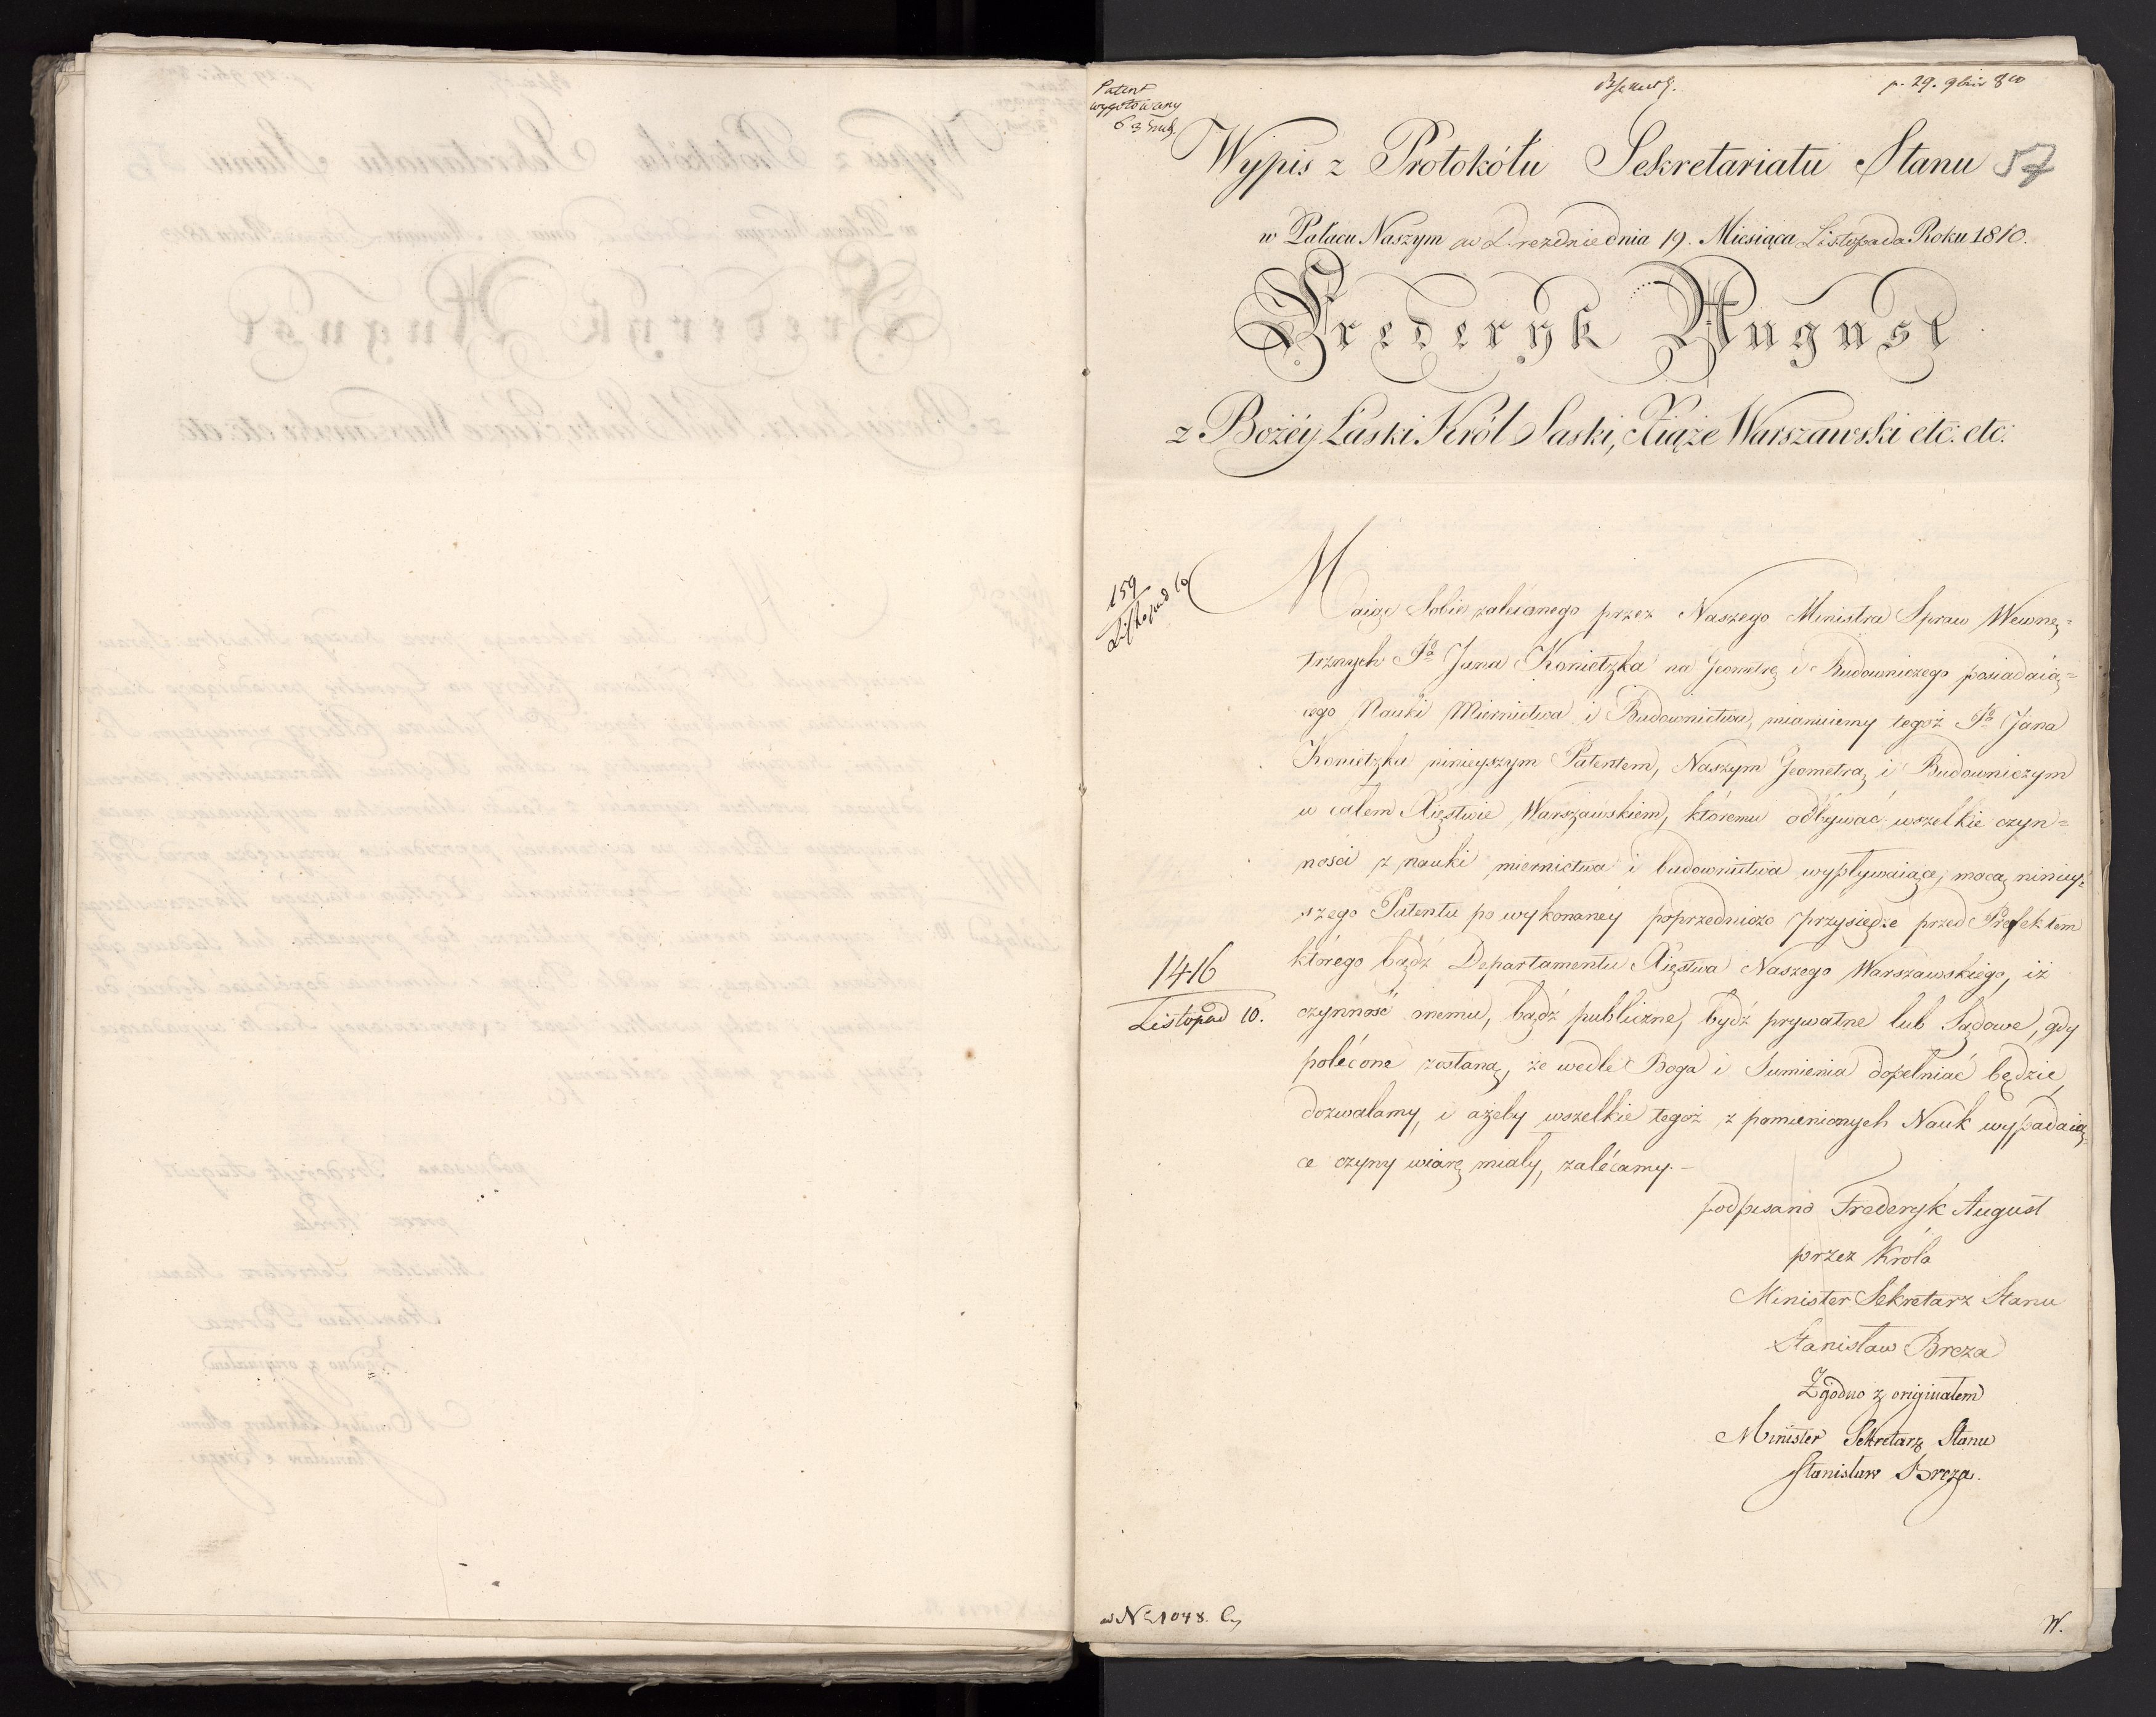 Patent
wygotowany
p. 29. 9bris 810
Wypis z Protokółu Sekretariatu Stanu 57
w Pałacu Naszym w Dreznie dnia 19. Miesiąca Listopada Roku 1810.
Frederyk August
z Bożéy Łaski Król Saski, Xiąże Warszawski etc: etc:
159
Listopad 10
Maiąc Sobie zalécanego przez Naszego Ministra Spraw Wewnę=
trznych Pa Jana Konietzka na Geometrę i Budowniczego posiadaią=
cego Nauki Miernictwa i Budownictwa, mianuiemy tegoż Pa Jana
Konietzka ninieyszym Patentem, Naszym Geometrą i Budowniczym
w całem Xięstwie Warszawskiem, któremu odbywać wszelkie czyn=
ności z nauki miernictwa i budownictwa wypływaiące, mocą niniey=
szego Patentu po wykonanéy poprzedniczo przysiędze przed Prefektem
1416
Listopad 10.
którego bądź Departamentu Xięstwa Naszego Warszawskiego, iż
czynność onemu, bądź publiczne, bydź prywatne lub Sądowe, gdy
polécone zostaną, że wedle Boga i Sumienia dopełniać będzie,
dozwalamy, i ażeby wszelkie tegoż z pomienionych Nauk wypadaią=
ce czyny wiarę miały, zalécamy.—
podpisano Frederyk August
przez Króla
Minister Sekretarz Stanu
Stanisław Breza
Zgodno z originałem
Minister Sekretarz Stanu
Stanisław Breza.
ad No 1048.
W.